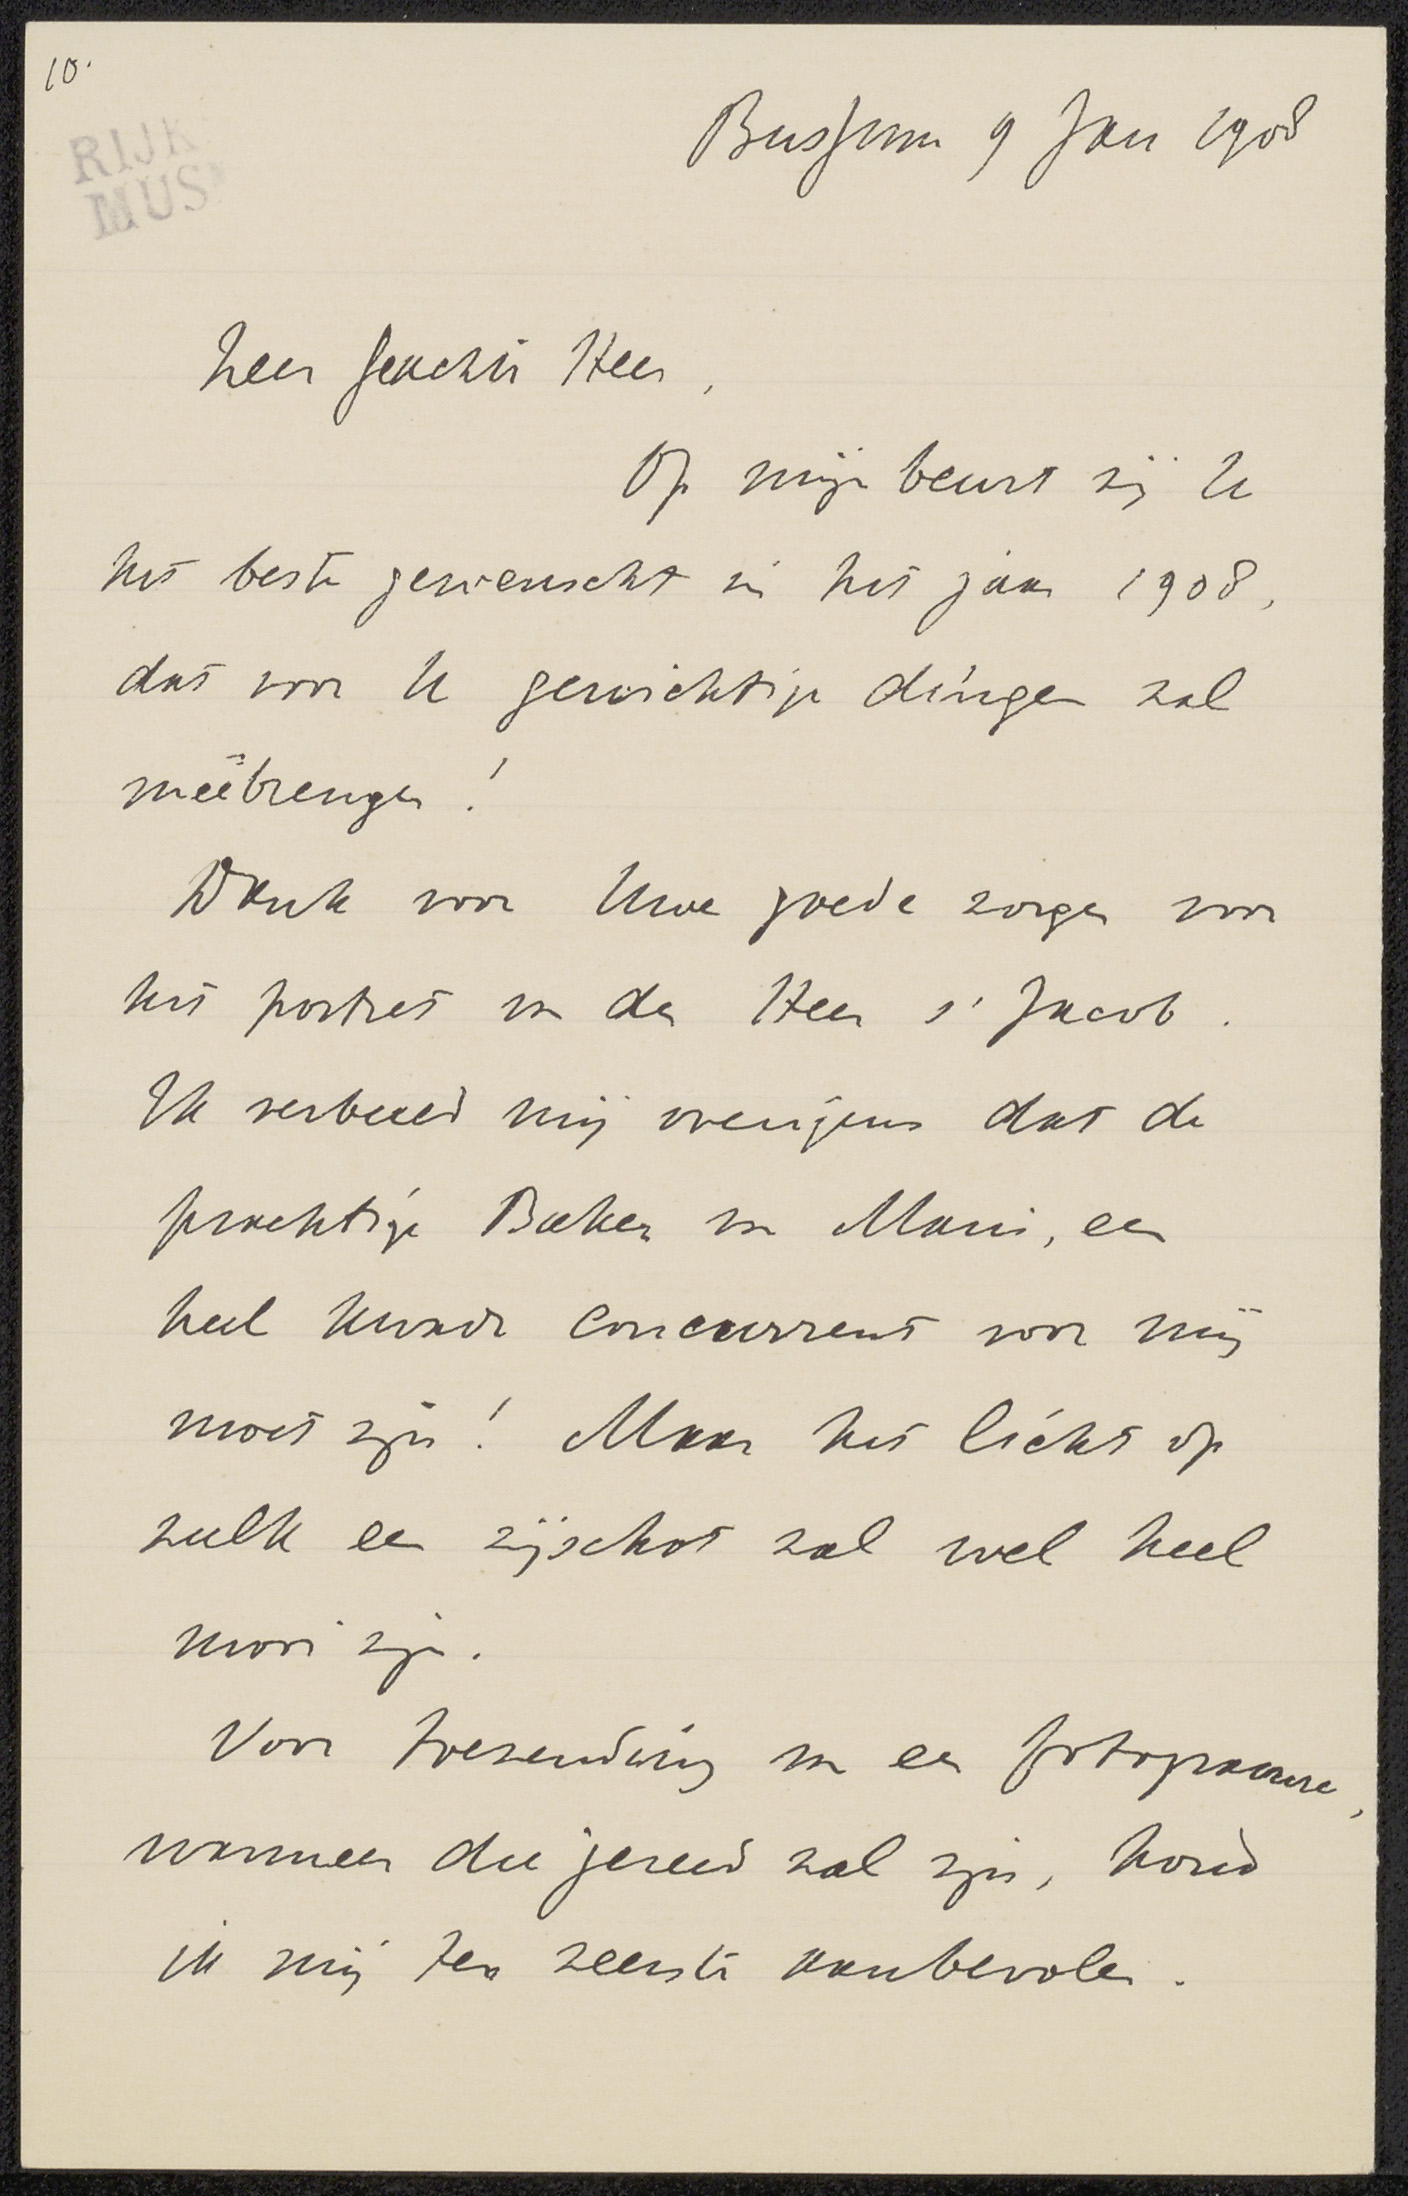 10.
RIJK
MUS
Bussum 9 Jan 1908
Zeer geachte Heer,
Op mijn beurt zij U
het beste gewenscht in het jaar 1908,
dat voor U gewichtige dingen zal
meêbrengen!
Dank voor Uwe goede zorgen voor
het portret van den Heer s' Jacob.
Ik verbeeld mij overigens dat de
prachtige Baker van Maris, een
heel kwade concurrent voor mij
moet zijn! Maar het licht op
zulk een zijschot zal wel heel
mooi zijn.
Voor toezending van een fotogravure,
wanneer die gereed zal zijn, houd
ik mij ten zeerste aanbevolen.